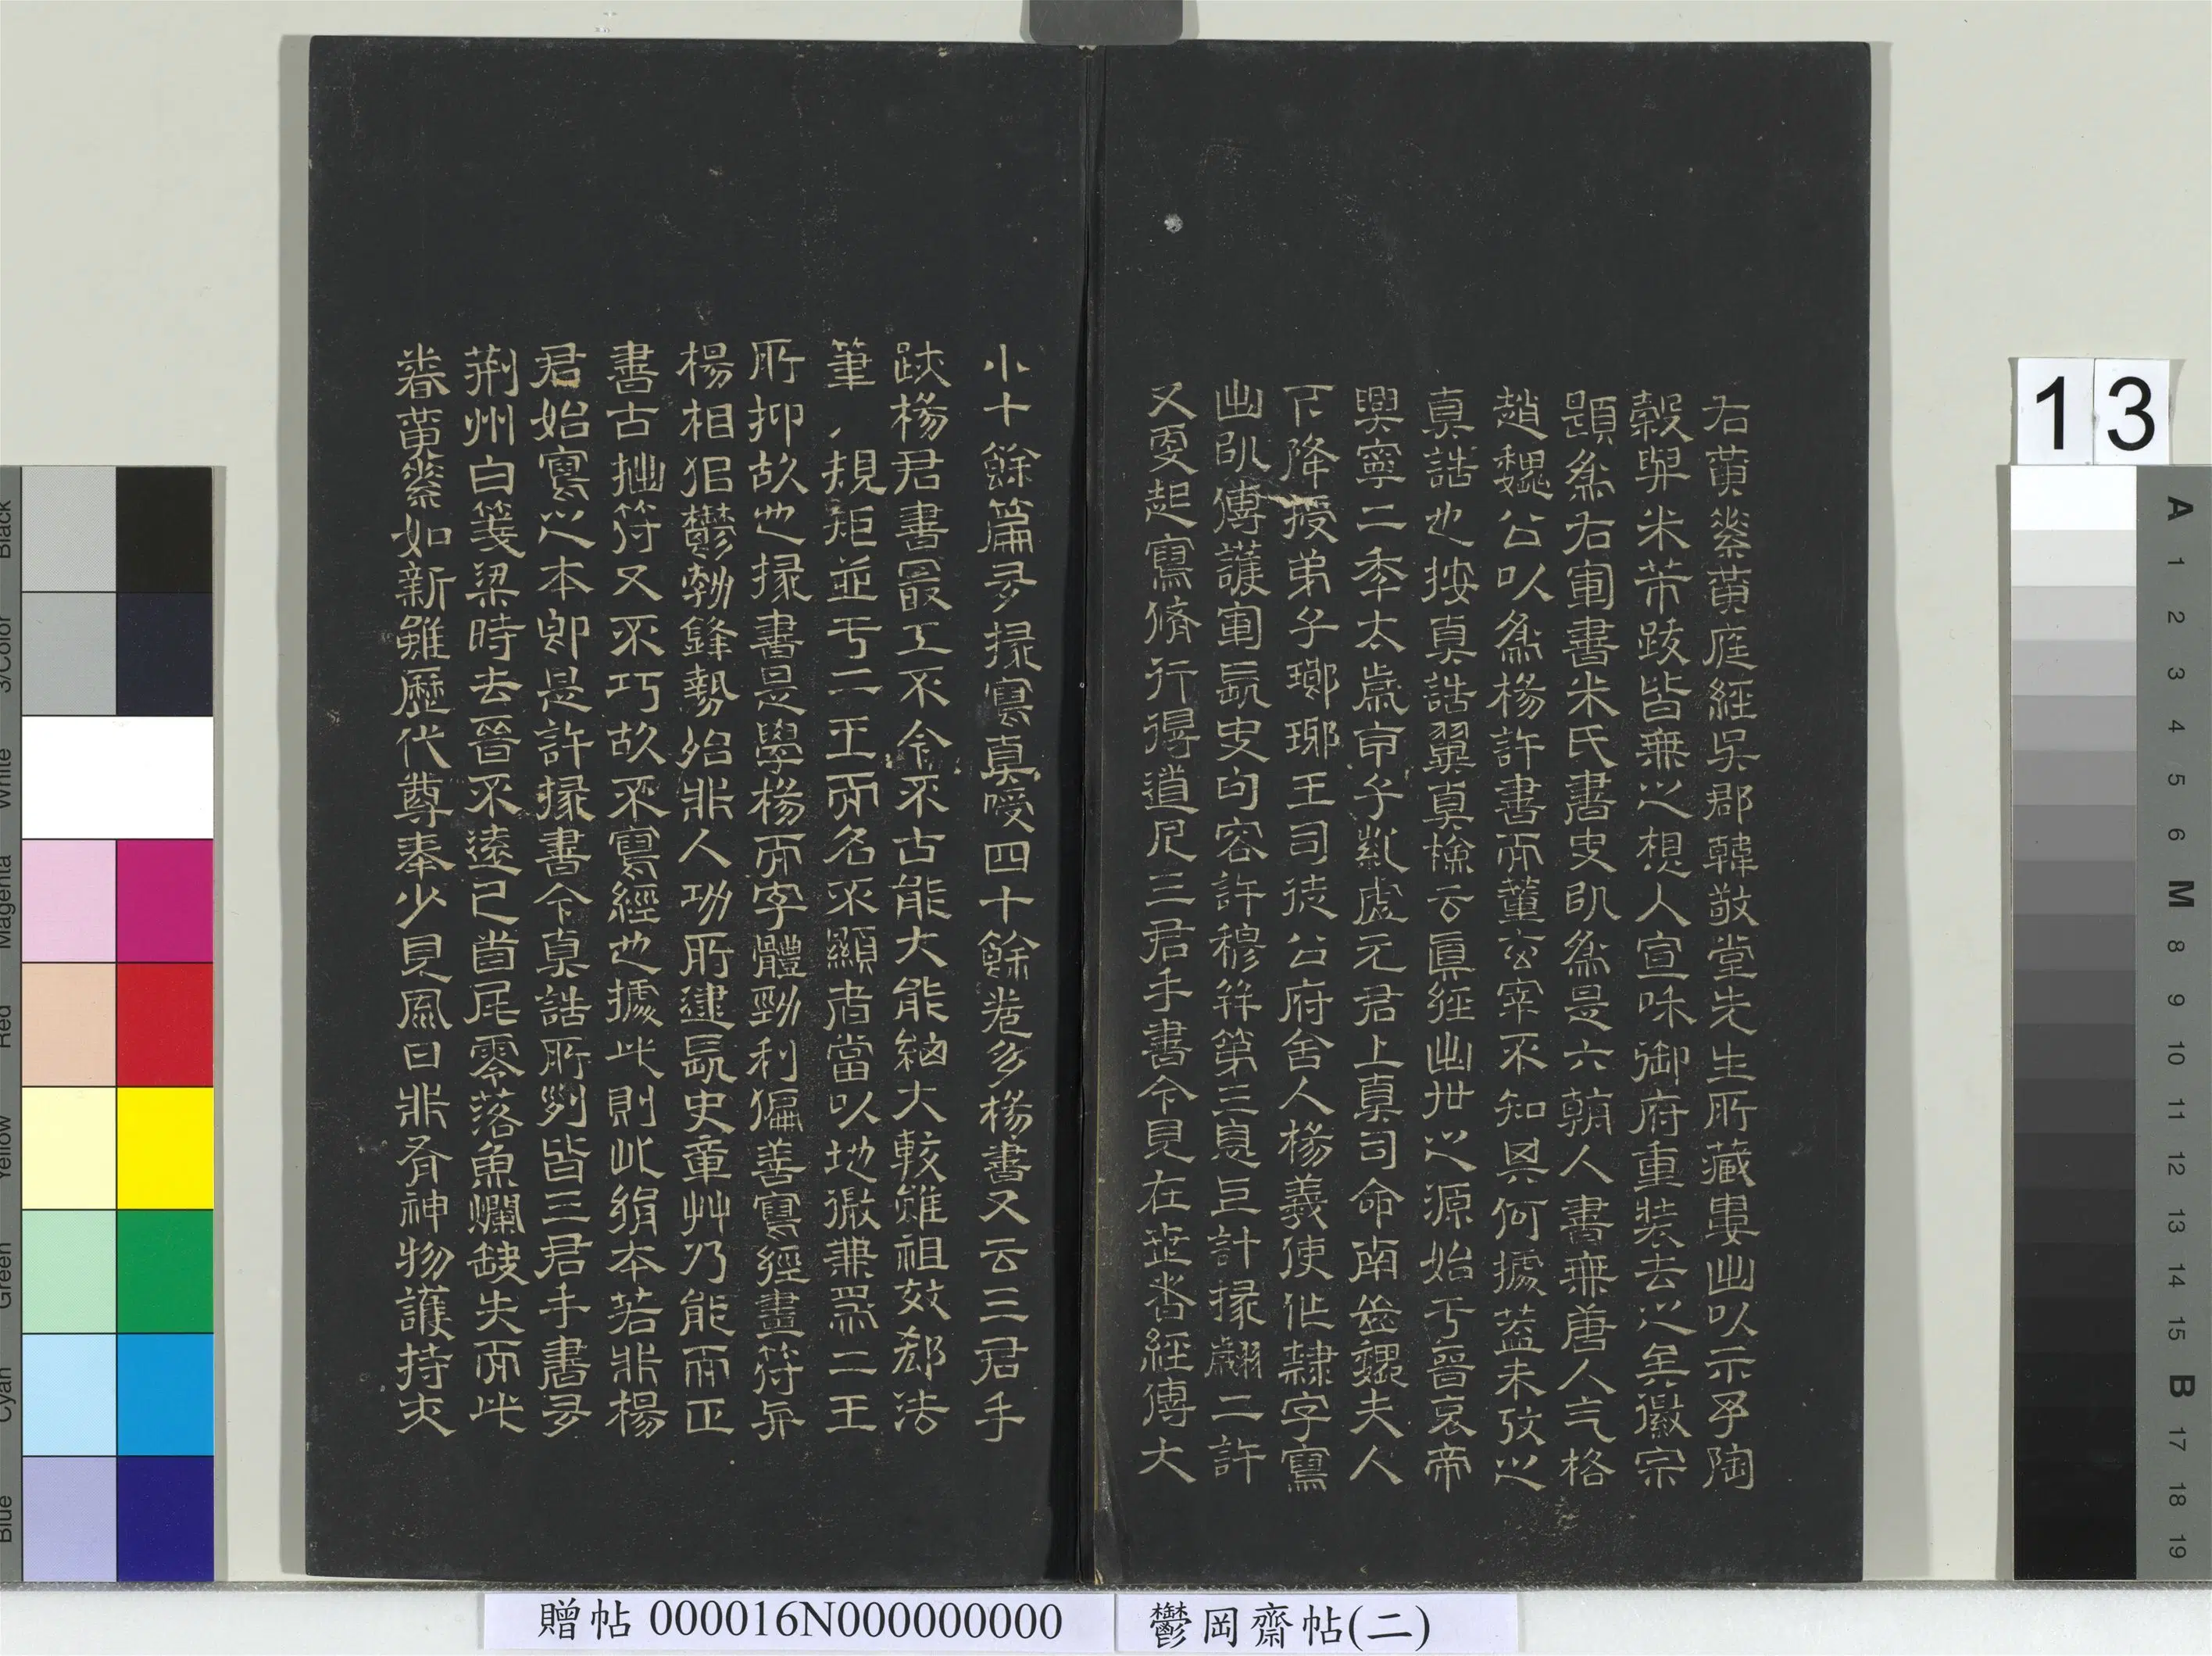 右黄素黄庭經吳郡韓敬堂先生所藏嘗出以示予陶
穀與米芾跋皆無之想入宣咊御府重裝去之矣徽宗
題為右軍書米氏書史以為是六朝人書無唐人气格
趙魏公以為楊許書而董玄宰不知其何據蓋未攷之
真誥也按真誥翼真檢云真經出世之源始于晉哀帝
興寧二年太歲甲子紫虛元君上真司命南岳魏夫人
下降授弟子瑯琊王司徒公府舍人楊義使作隸字寫
出以傳護軍長史句容許穆并第三息上計掾翽二許
又更起寫脩行得道凡三君手書今見在世者經傳大
小十餘篇多掾寫真嗳四十餘卷多楊書又云三君手
跡楊君書最工不今不古能大能細大較雖祖效郄法
筆規矩並于二王而名不顯者當以地微兼為二王
所抑故也掾書是學楊而字體勁利偏善寫經畫符與
楊相似鬱勃鋒勢殆非人功所逮長史章艸乃能而正
書古拙符又不巧故不寫經也據此則此絹本若非楊
君始寫之本即是許掾書今真誥所列皆三君手書多
荊州白箋梁時去晉不遠已首尾零落魚爛缺失而此
卷黄素如新雖歷代尊奉少見風日非有神物護持夾
贈帖 000016N000000000
鬱岡齋帖(二)
13
A
1
2
3
4
5
6
M
8
9
10
11
12
13
14
15
B
17
18
19
Black
3/Color
White
Magenta
Red
Yellow
Green
Cyan
Blue